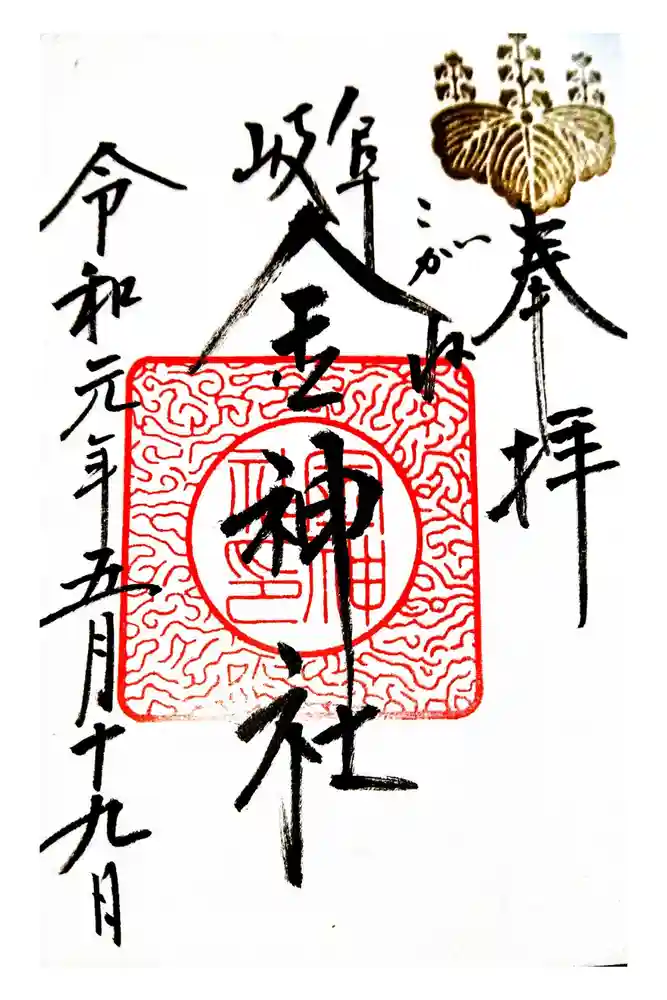 奉拝
こがね
岐阜
金神社
金神社印
令和元年五月十九日